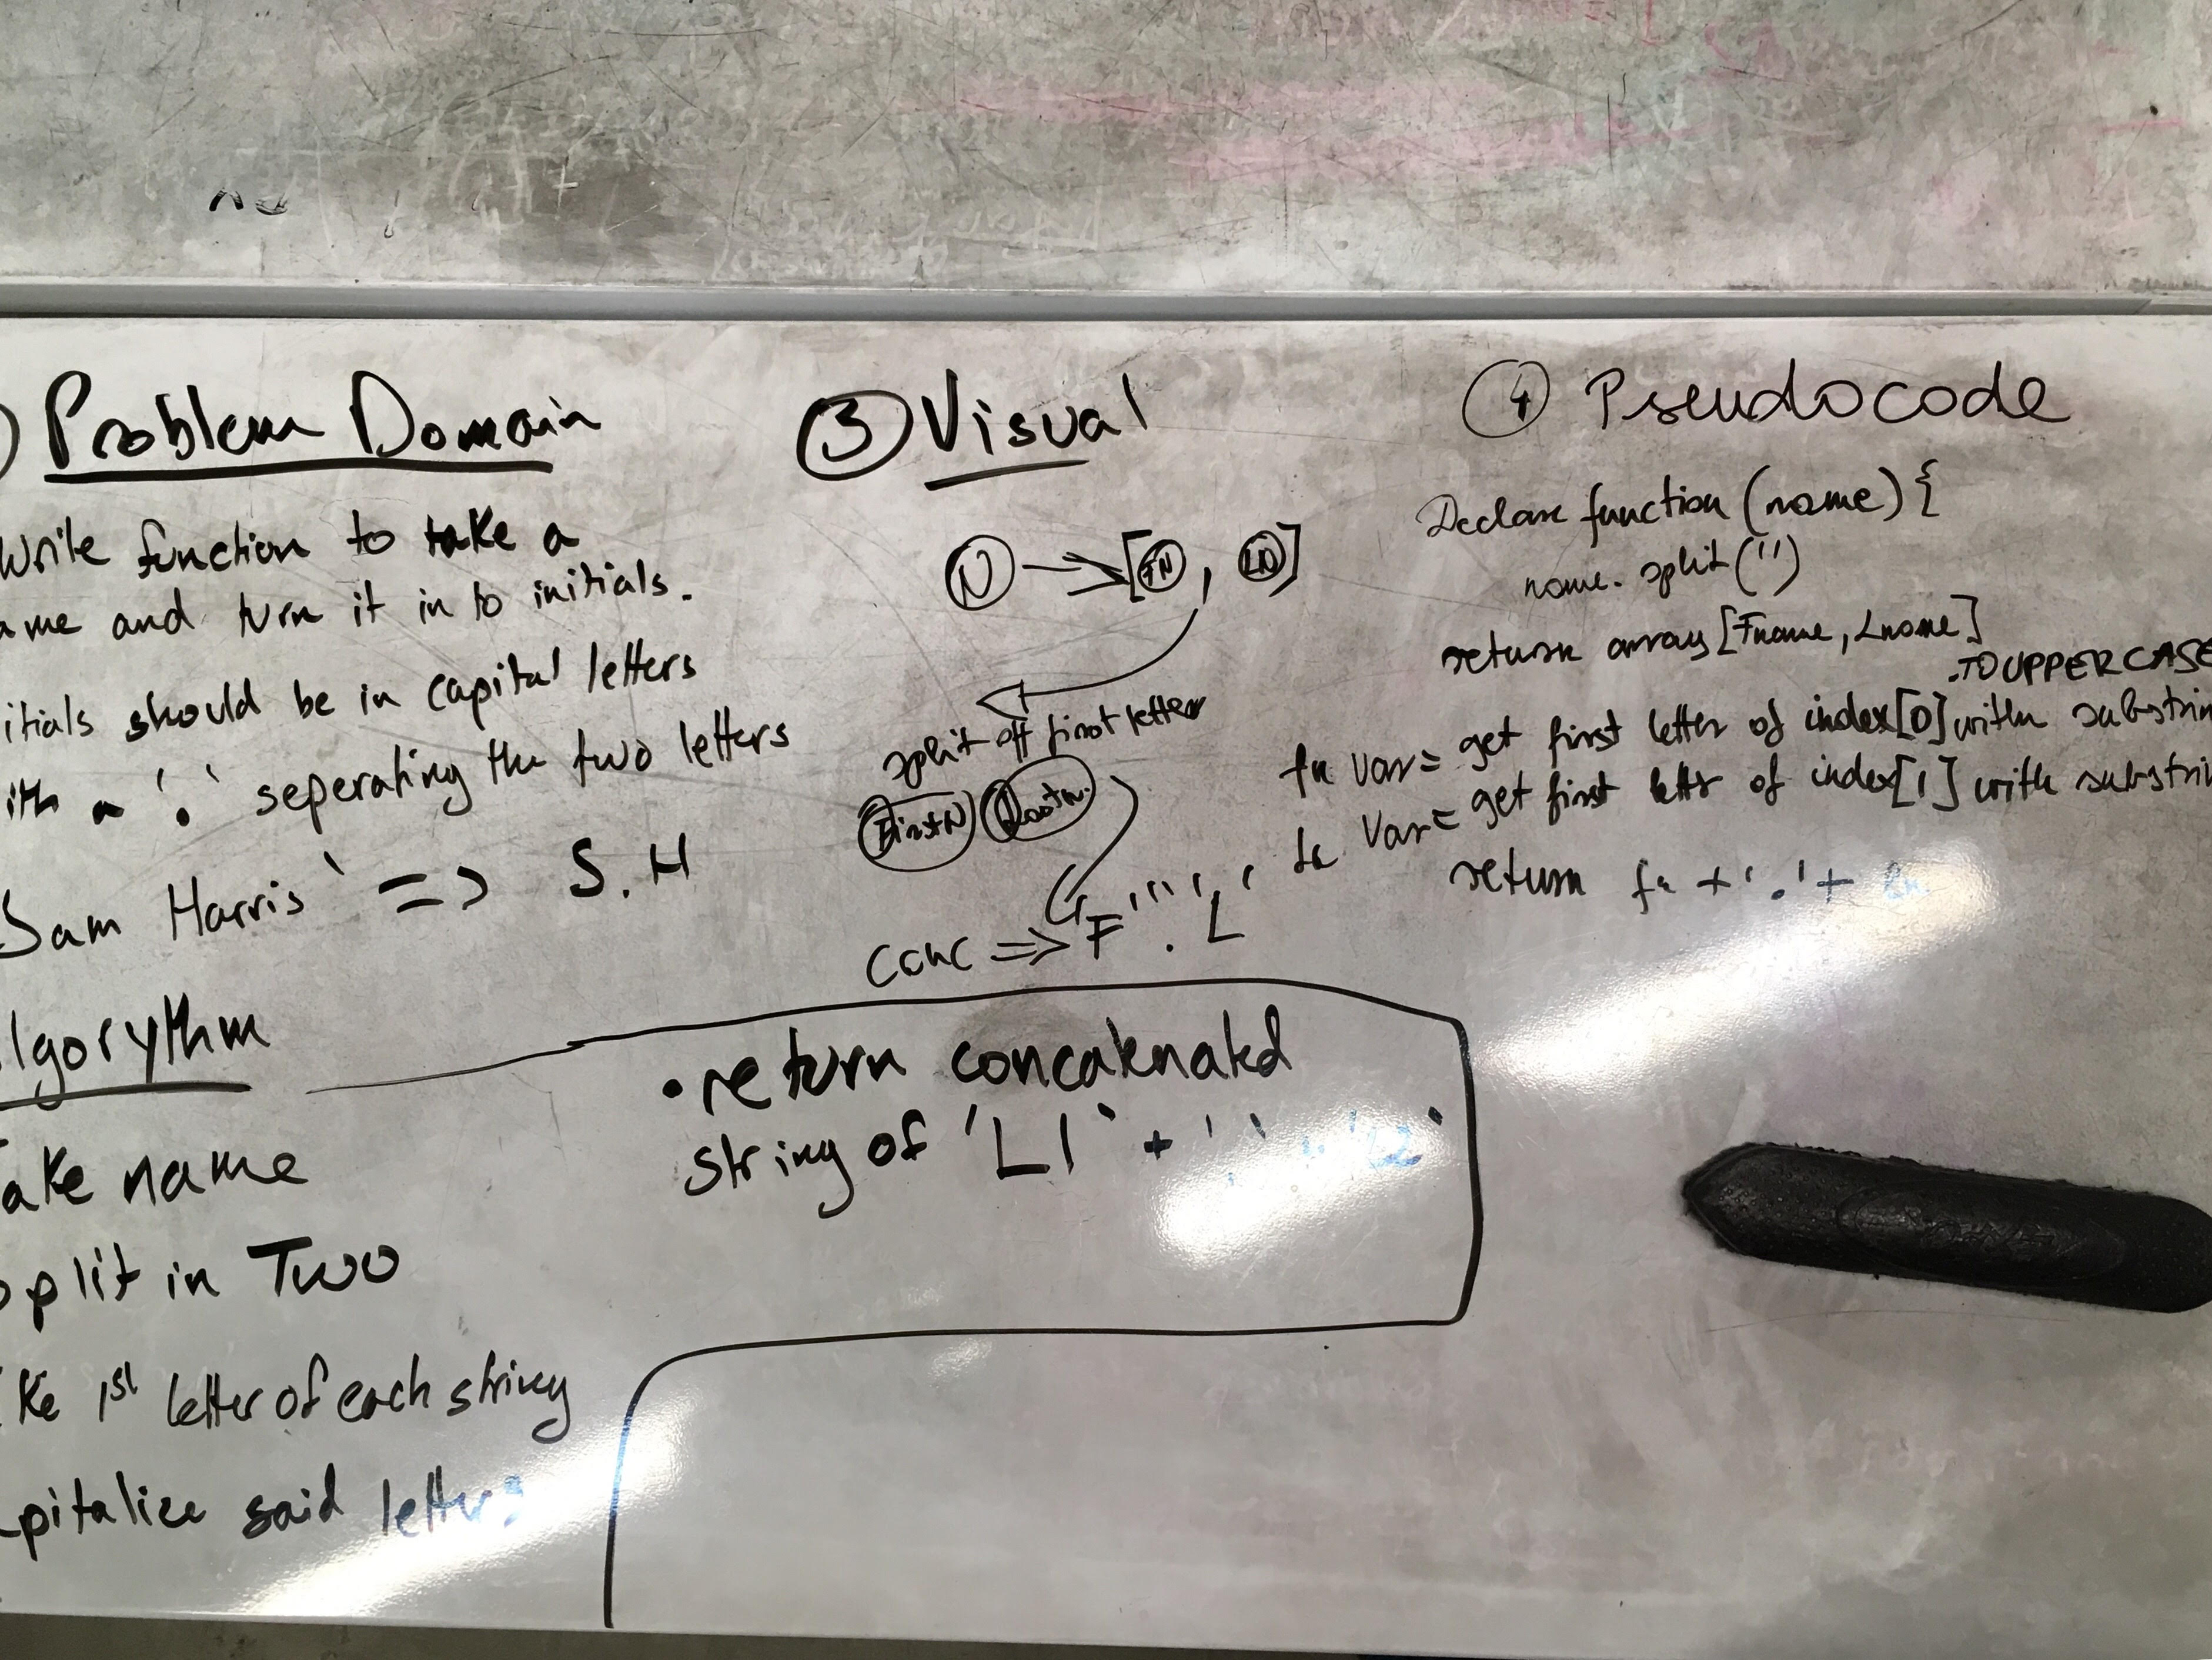 Problem Domain
Write function to take a
ame and turn it in to initials.
itials should be in capital letters
ith a '.' seperating the two letters
Sam Harris' => S.H
lgorythm
ake name
plit in Two
ke 1st letter of each string
pitalize said letters
• return concatenated
string of 'L1' + '.' + 'L2'
③ Visual
N → [FN, LN]
split off first letter
FirstN LastN.
conc => 'F' '.' 'L'
④ Pseudocode
Declare function (name) {
name.split('')
return array [Fname, Lname]
.TOUPPERCASE
fn var = get first letter of index[0] with substrin
ln var = get first letter of index[1] with substrin
return fn + '.' + ln